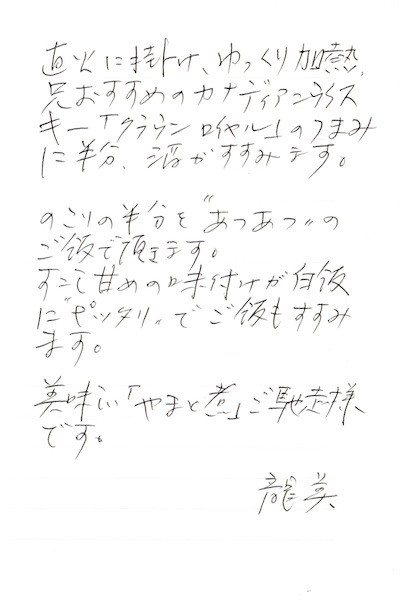 直火に掛け、ゆっくり加熱、
兄おすすめのカナディアンウイス
キー「クラウン ロイヤル」のつまみ
に半分、酒がすすみます。
のこりの半分を〝あつあつ〟の
ご飯で頂きます。
すこし甘めの味付けが白飯
に〝ピッタリ〟でご飯もすすみ
ます。
美味しい「やまと煮」ご馳走様、
です。
龍美